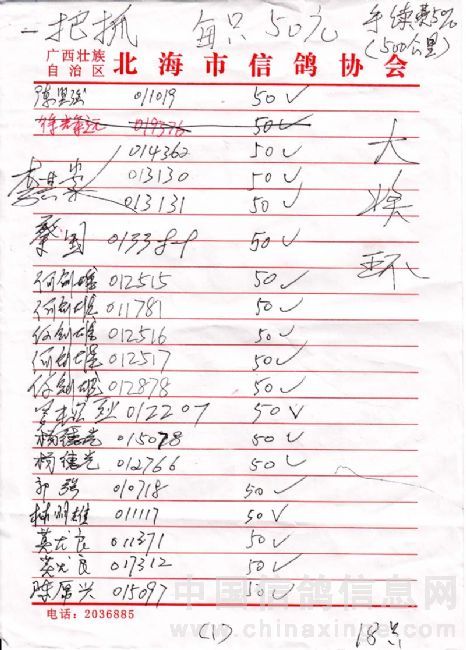 一把抓 每只50元 手续费50元
(500公里)
广西壮族
自治区 北海市信鸽协会
陈里强 011019 50✓
019376 50✓
014362 50✓
013130 50✓
013131 50✓
50✓
何剑雄 012515 50✓
何剑雄 011781 50✓
何剑雄 012516 50✓
何剑雄 012517 50✓
何剑雄 012878 50✓
012207 50✓
杨德光 015078 50✓
杨德光 012766 50✓
郭强 010718 50✓
林明雄 011117 50✓
莫光良 011371 50✓
莫光良 017312 50✓
陈厚兴 015097 50✓
大
奖
环
电话：2036885
(1) 18只
中国信鸽信息网
www.chinaxinge.com